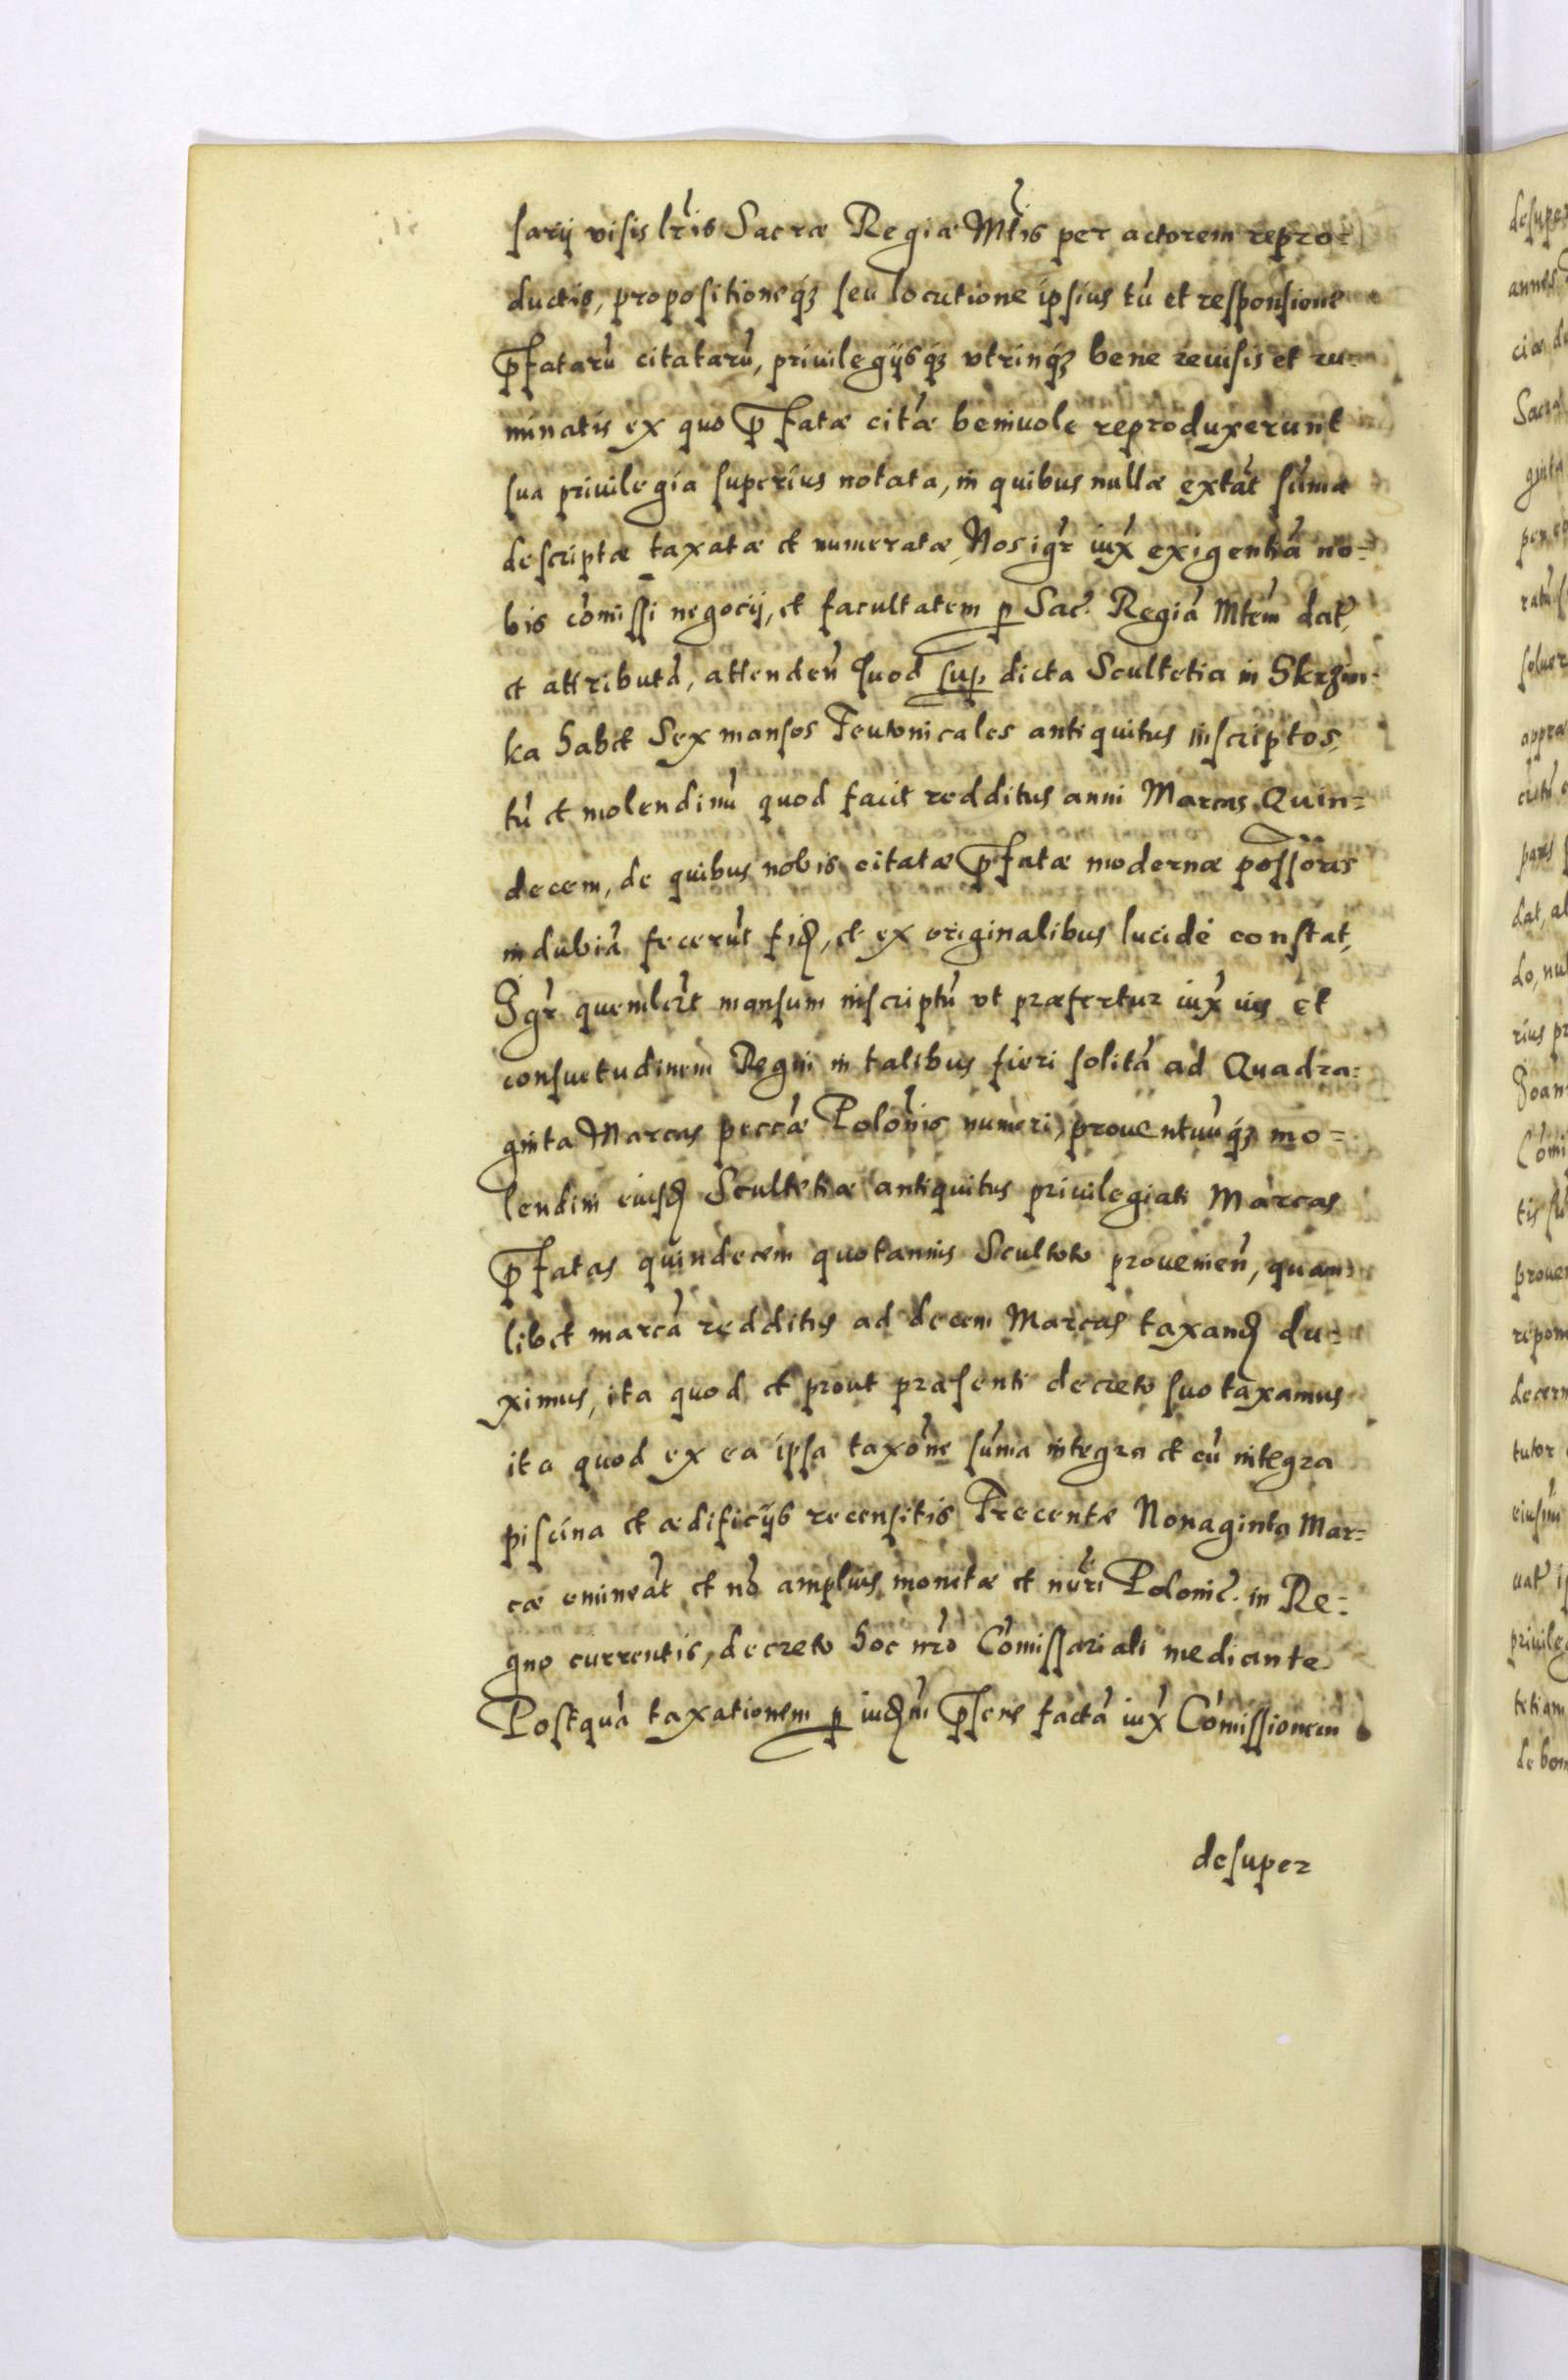 sarij visis lr̃is Sacræ Regiæ Mt̃is per actorem repro=
ductis, propositioneq́ꝫ seu locutione ipsius tũ et responsione
p̄fatarũ citatarũ, priuilegijsq́ꝫ vtrinq́ꝫ bene reuisis et ru=
minatis ex quo p̄fatæ citãæ beniuole reproduxerunt
sua priuilegia superius notata, in quibus nullæ extãt sũmæ
descriptæ taxatæ et numeratæ, Nos igr̃ iux̃ exigentiã no=
bis cõmissi negocij, et facultatem ꝑ Sac̃. Regiã Mtẽm dat̃,
et attributã, attendeñ Quod sup. dicta Scultetia in Skrzin=
ka habet Sex mansos Teutonicales antiquitus inscriptos,
tũ et molendinũ quod facit redditus anni Marcas Quin=
decem, de quibus nobis citatæ p̄fatæ modernæ possõres
indubiã fecerũt fiđ, et ex originalibus lucidè constat,
Igr̃ quemlib̃t mansum inscriptũ vt præfertur iux̃ ius et
consuetudinem Regni in talibus fieri solitã ad Quadra=
ginta Marcas peccãæ Polõnis numeri, prouentuũq́ꝫ mo=
lendini eiusđ Scultetiæ antiquitus priuilegiati Marcas
p̄fatas quindecem quotannis Sculteto prouenieñ, quam=
libet marcã redditus ad decem Marcas taxanđ du=
ximus, ita quod et prout præsenti decreto suo taxamus
ita quod ex ea ipsa taxõne sũma integra et cũ integra
piscina et ædificijs recensitis Trecentæ Nonaginta Mar=
cæ emineãt et nõ amplius monetæ et nũri Poloniĉ. in Re=
gno currentis, decreto hoc nr̃o Cõmissariali mediante
Postquã taxationem ꝑ iuđm̃ p̄sens factã iux̃ Cõmissionem
desuper